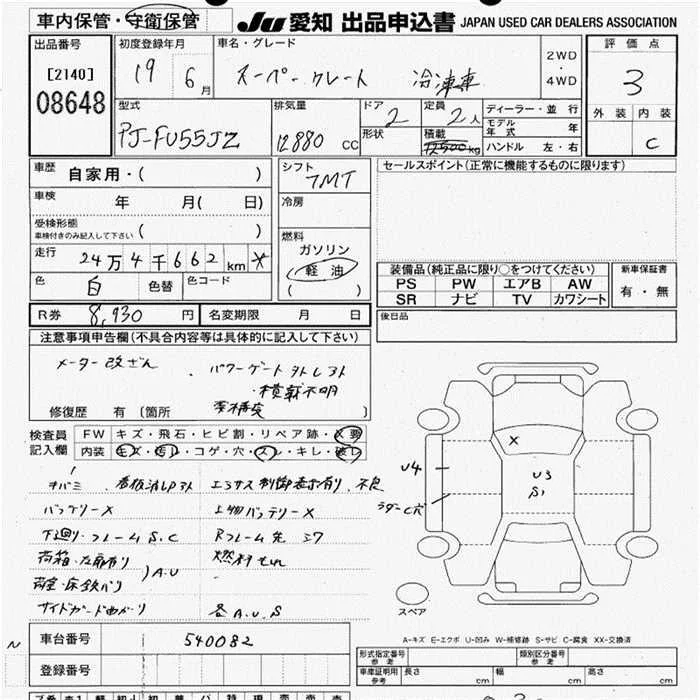 車内保管・守衛保管
JU 愛知 出品申込書 JAPAN USED CAR DEALERS ASSOCIATION
出品番号
[2140]
08648
初度登録年月
19 6月
車名・グレード
スーパーグレート 冷凍車
2WD
・
4WD
評価点
3
外装 内装
C
型式
PJ-FU55JZ
排気量
12880 CC
ドア
2
形状
定員
2人
積載
12500kg
ディーラー・並行
モデル年式 年
ハンドル 左・右
車歴
自家用・( )
車検
年 月( 日)
受検形態
車検付きのみ記入して下さい
( )
走行
24万4千662km *
色
白
色替
色コード
シフト
7MT
冷房
燃料
ガソリン
(軽油)
( )
セールスポイント(正常に機能するものに限ります)
装備品(純正品に限り○をつけてください)
PS PW エアB AW
SR ナビ TV カワシート
新車保証書
有・無
R券 8,930円
名変期限 月 日
後日品
注意事項申告欄(不具合内容等は具体的に記入して下さい)
メーター改ざん
・パワーゲート
・積載不明
修復歴 有 (箇所 )
検査員
記入欄
FW キズ・飛石・ヒビ割・リペア跡・X要
内装 キズ・汚れ・コゲ・穴・スレ・キレ・破れ
バッテリーX
上物バッテリーX
下廻り・フレームS.C
A.U
各A.U.S
X
U4
U3
S1
スペア
A-キズ E-エクボ U-凹み W-補修跡 S-サビ C-腐食 XX-交換済
N
車台番号 540082
登録番号
形式指定番号
参考
類別区分番号
参考
車庫証明用
参考
長さ cm
幅 cm
高さ cm